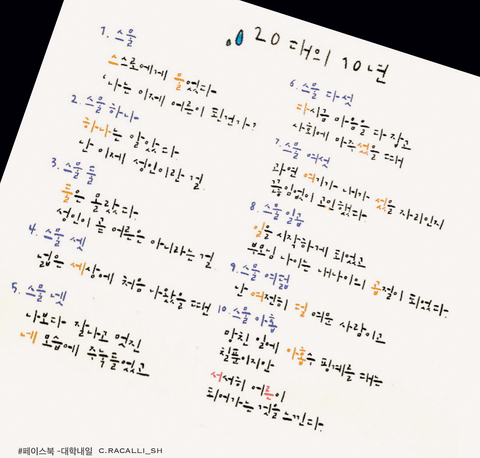 20대의 10년
1. 스물
스스로에게 물었다
'나는 이제 어른이 된건가?
2. 스물 하나
하나는 알았다
난 이제 성인이란 걸
3. 스물 둘
둘은 몰랐다
성인이 곧 어른은 아니라는 걸
4. 스물 셋
넓은 세상에 처음 나왔을 때
5. 스물 넷
나보다 잘나고 멋진
네 모습에 주눅들었고
6. 스물 다섯
다시금 마음을 다잡고
사회에 아주 섯을 때
7. 스물 여섯
과연 여기가 내가 섯을 자리인지
끊임없이 고민했다
8. 스물 일곱
일을 시작하게 되었고
부모님 나이는 내 나이의 곱절이 되었다.
9. 스물 여덟
난 여전히 덜 여문 사람이고
10. 스물 아홉
망친 일에 아홉수 핑계를 대는
철푼이지만
서서히 어른이
되어가는 것을 느낀다.
#페이스북 -대학내일 C.RACALLI_SH